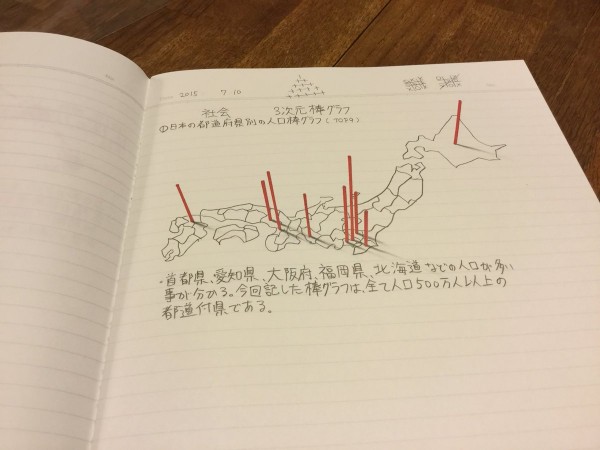 2015 7.10
社会 3次元棒グラフ
①日本の都道府県別の人口棒グラフ(TOP9)
・首都県、愛知県、大阪府、福岡県、北海道などの人口が多い
事が分かる。今回記した棒グラフは、全て人口500万人以上の
都道付県である。